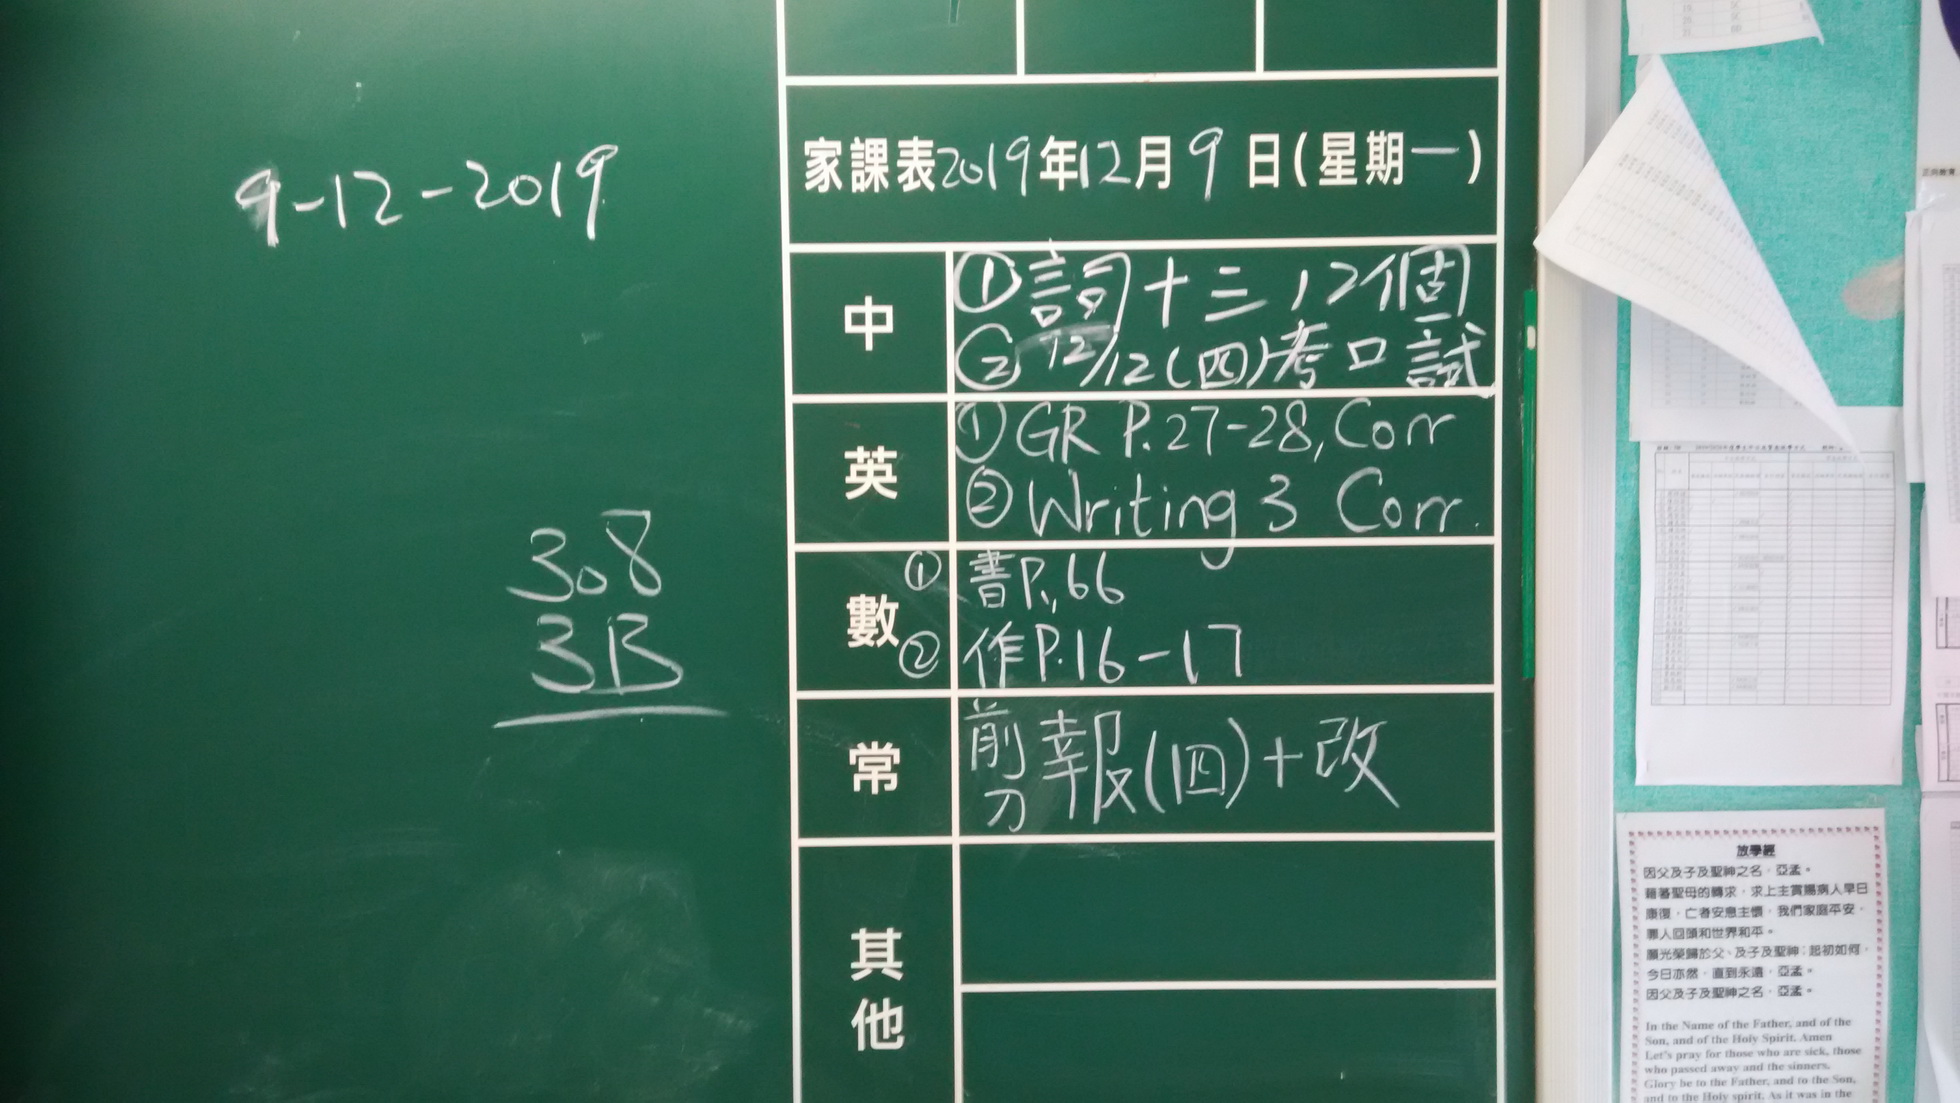 9-12-2019
308
3B
家課表2019年12月9日(星期一)
中
①詞十三 12個
②12/12(四)考口試
英
①GR P.27-28, Corr
②Writing 3 Corr.
數
①書P.66
②作P.16-17
常
剪報(四)+改
其他
放學經
因父及子及聖神之名,亞孟。
藉著聖母的轉求,求上主賞賜病人早日
康復,亡者安息主懷,我們家庭平安,
罪人回頭和世界和平。
願光榮歸於父、及子及聖神:起初如何,
今日亦然,直到永遠,亞孟。
因父及子及聖神之名,亞孟。
In the Name of the Father, and of the
Son, and of the Holy Spirit. Amen
Let's pray for those who are sick, those
who passed away and the sinners.
Glory be to the Father, and to the Son,
and to the Holy spirit. As it was in the